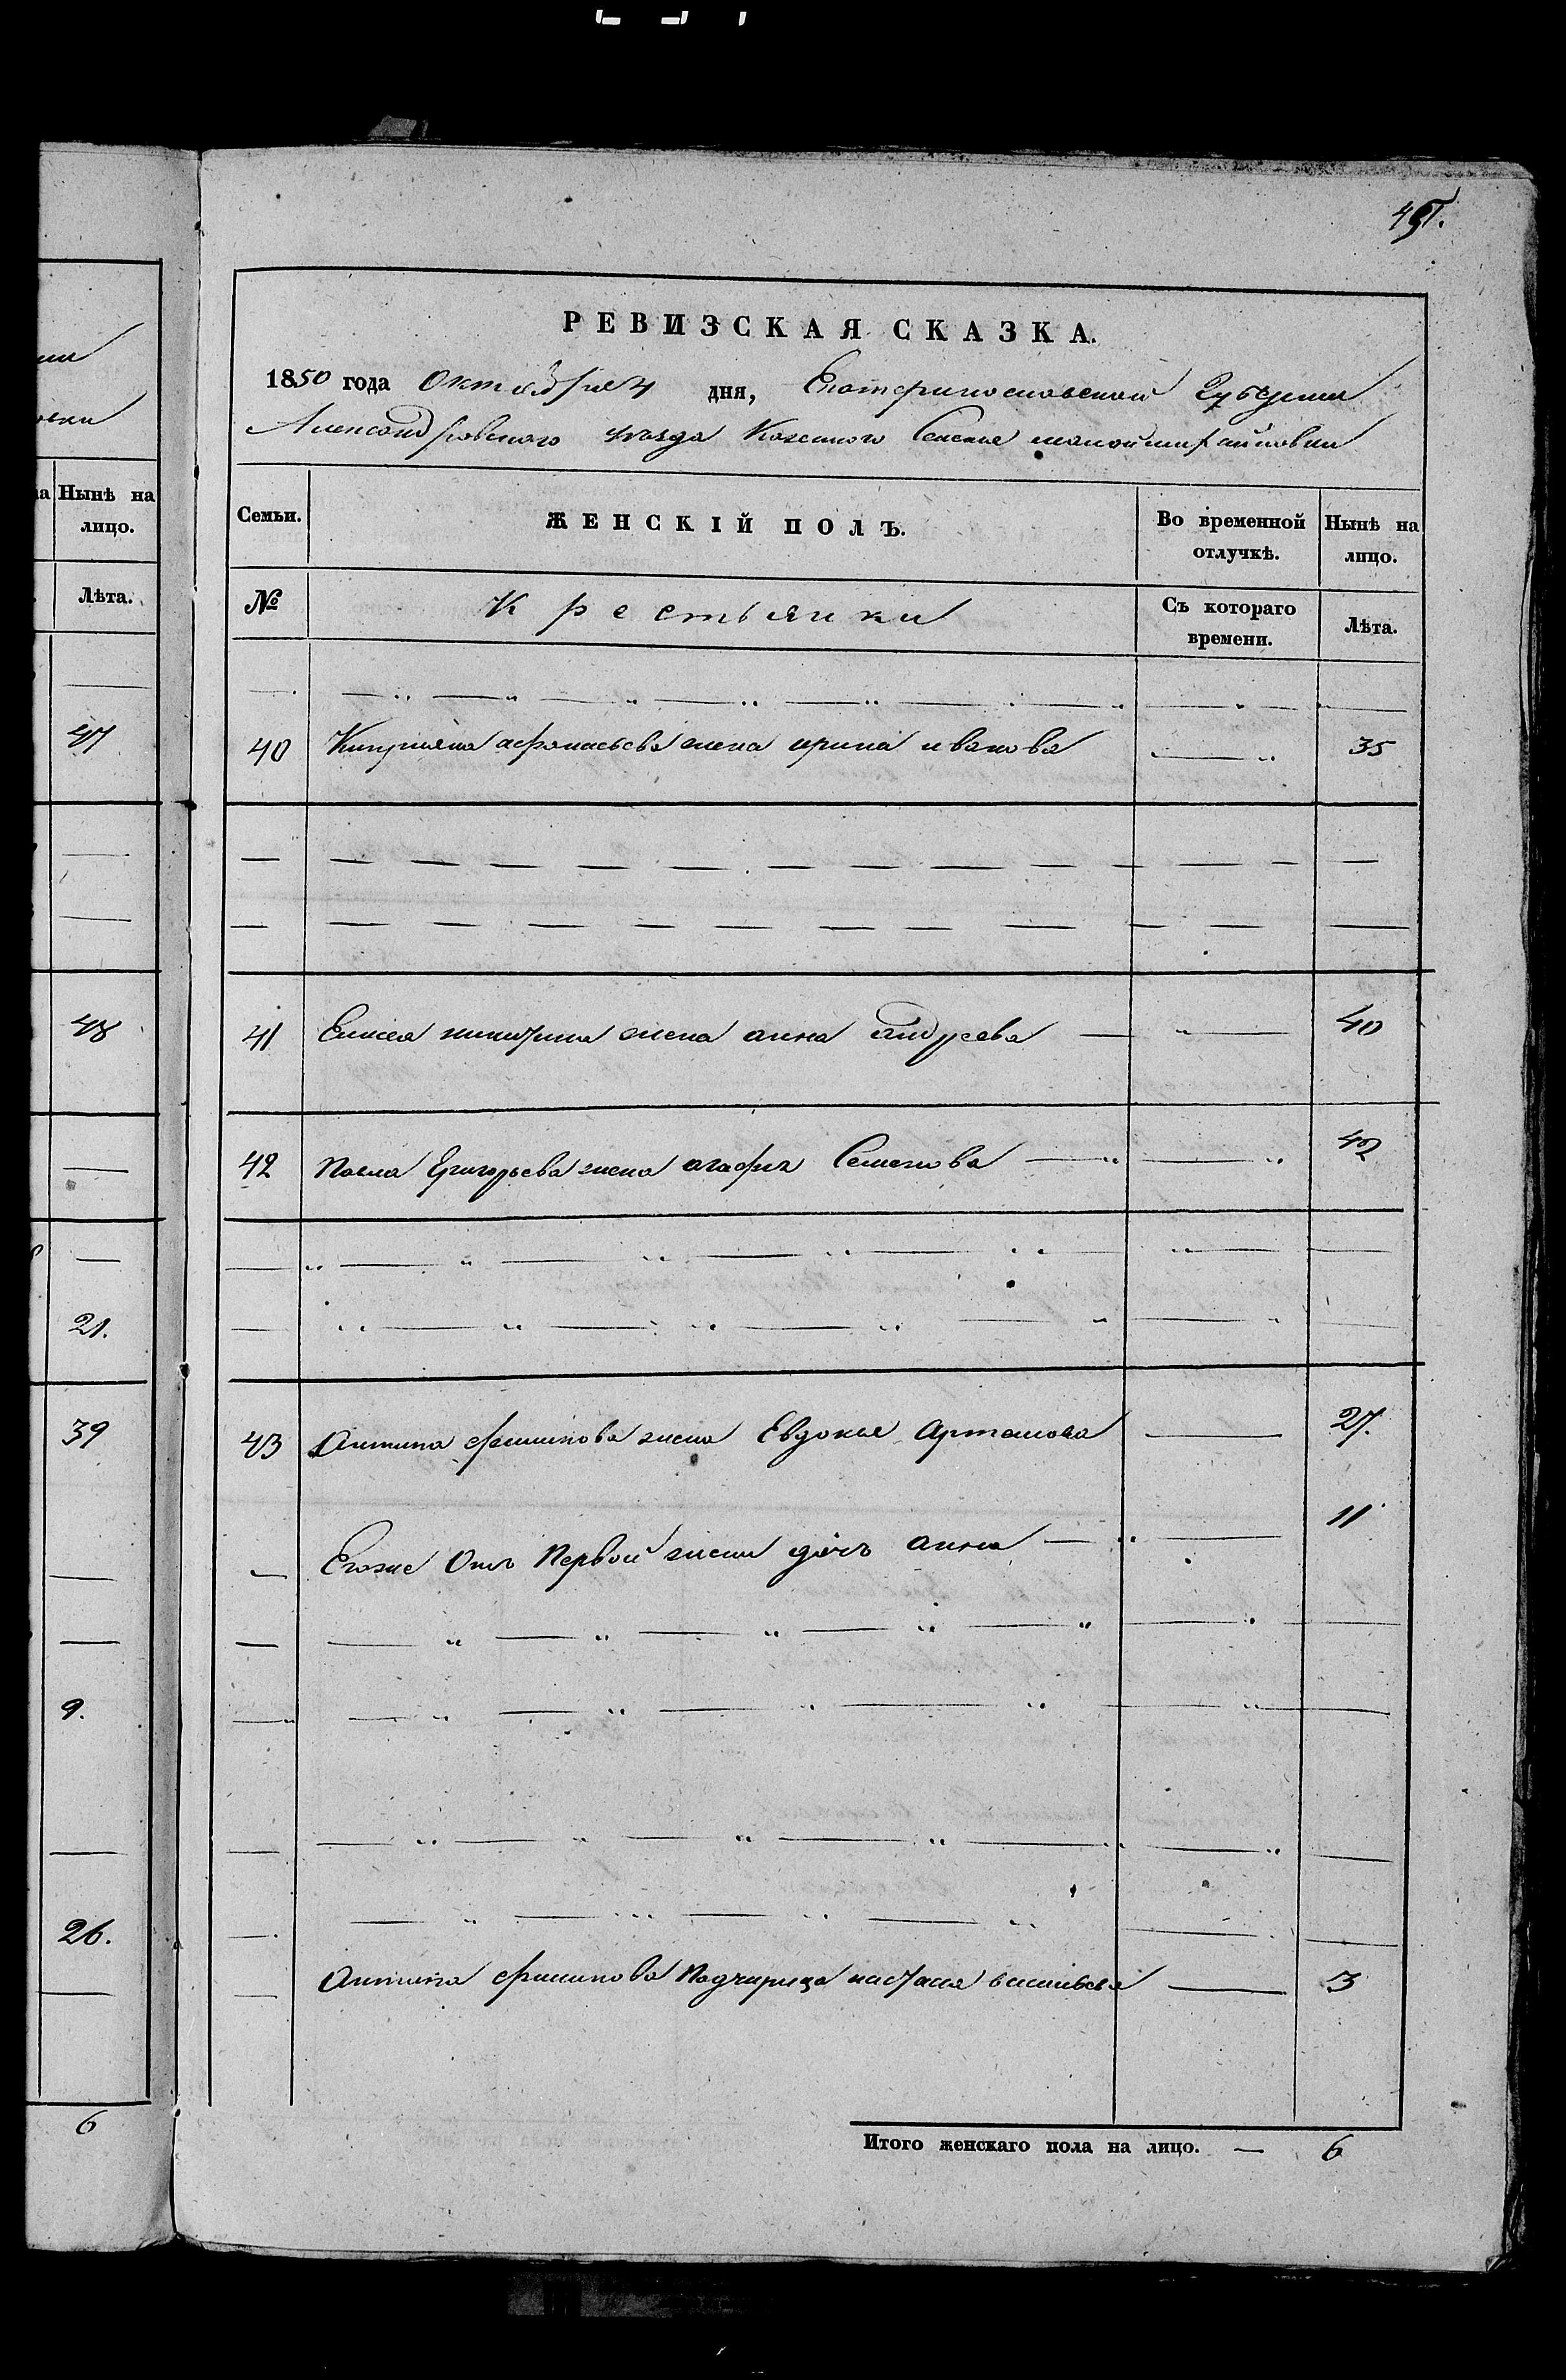 РЕВИЗСКАЯ СКАЗКА.
1850 года Октября 4 дня, Екатеринославской Губернии
Александровского уезда Казенного Селения
Семьи. ЖЕНСКІЙ ПОЛЪ. Во временной отлучкѣ. Нынѣ на лицо.
№ Крестьянки Съ котораго времени. Лѣта.
40 Киприяна афанасьева жена ирина иванова 35
41 Елисея никитина жена анна андреева 40
42 Павла Григорьева жена агафия Семенова 42
43 Антипа филипова жена Евдокия Артамова 27.
Егоже Отъ Первой жены дочь анна 11
Антипа филипова Падчирица настасия васильева 3
Итого женскаго пола на лицо. — 6
Нынѣ на
лицо.
Лѣта.
47
48
21.
39
9.
26.
6